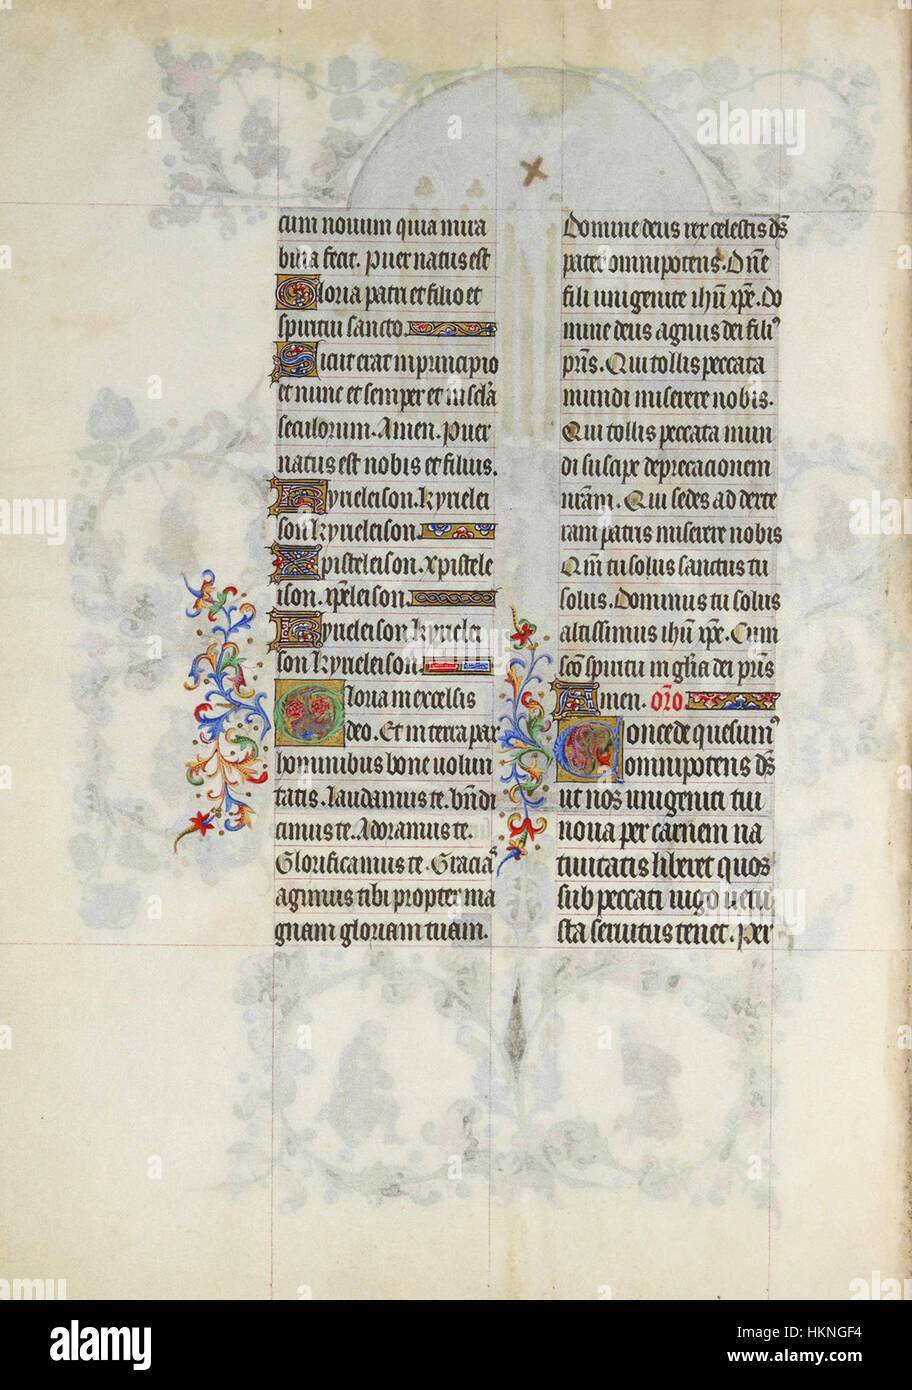 cum nouum quia mira
bilia fecit. Puer natus est
Gloria patri et filio et
spiritui sancto.
Sicut erat in principio
et nunc et semper et in sc̄la
seculorum. Amen. Puer
natus est nobis et filius.
Kyrieleison. kyrielei
son kyrieleison.
Xpisteleison. xpistele
ison. xp̄eleison.
Kyrieleison kyrielei
son kyrieleison.
Gloria in excelsis
deo. Et in terra pax
hominibus bone volun
tatis. Laudamus te. Bn̄di
cimus te. Adoramus te.
Glorificamus te. Gracias
agimus tibi propter ma
gnam gloriam tuam.
Domine deus rex celestis ds̄
pater omnipotens. Dn̄e
fili unigenite ihū xp̄e. Do
mine deus agnus dei filiꝰ
pr̄is. Qui tollis peccata
mundi miserere nobis.
Qui tollis peccata mun
di suscipe deprecacionem
nr̄am. Qui sedes ad dexte
ram patris miserere nobis
Qm̄ tu solus sanctus tu
solus. Dominus tu solus
altissimus ihū xp̄e. Cum
sc̄o spiritu in gl̄ia dei pr̄is
Amen. or̄o
Concede quesumꝰ
omnipotens ds̄
ut nos unigeniti tui
noua per carnem na
tiuitatis liberet quos
sub peccati iugo uetu
sta seruitus tenet. Per
alamy
a
alamy
Image ID: HKNGF4
www.alamy.com